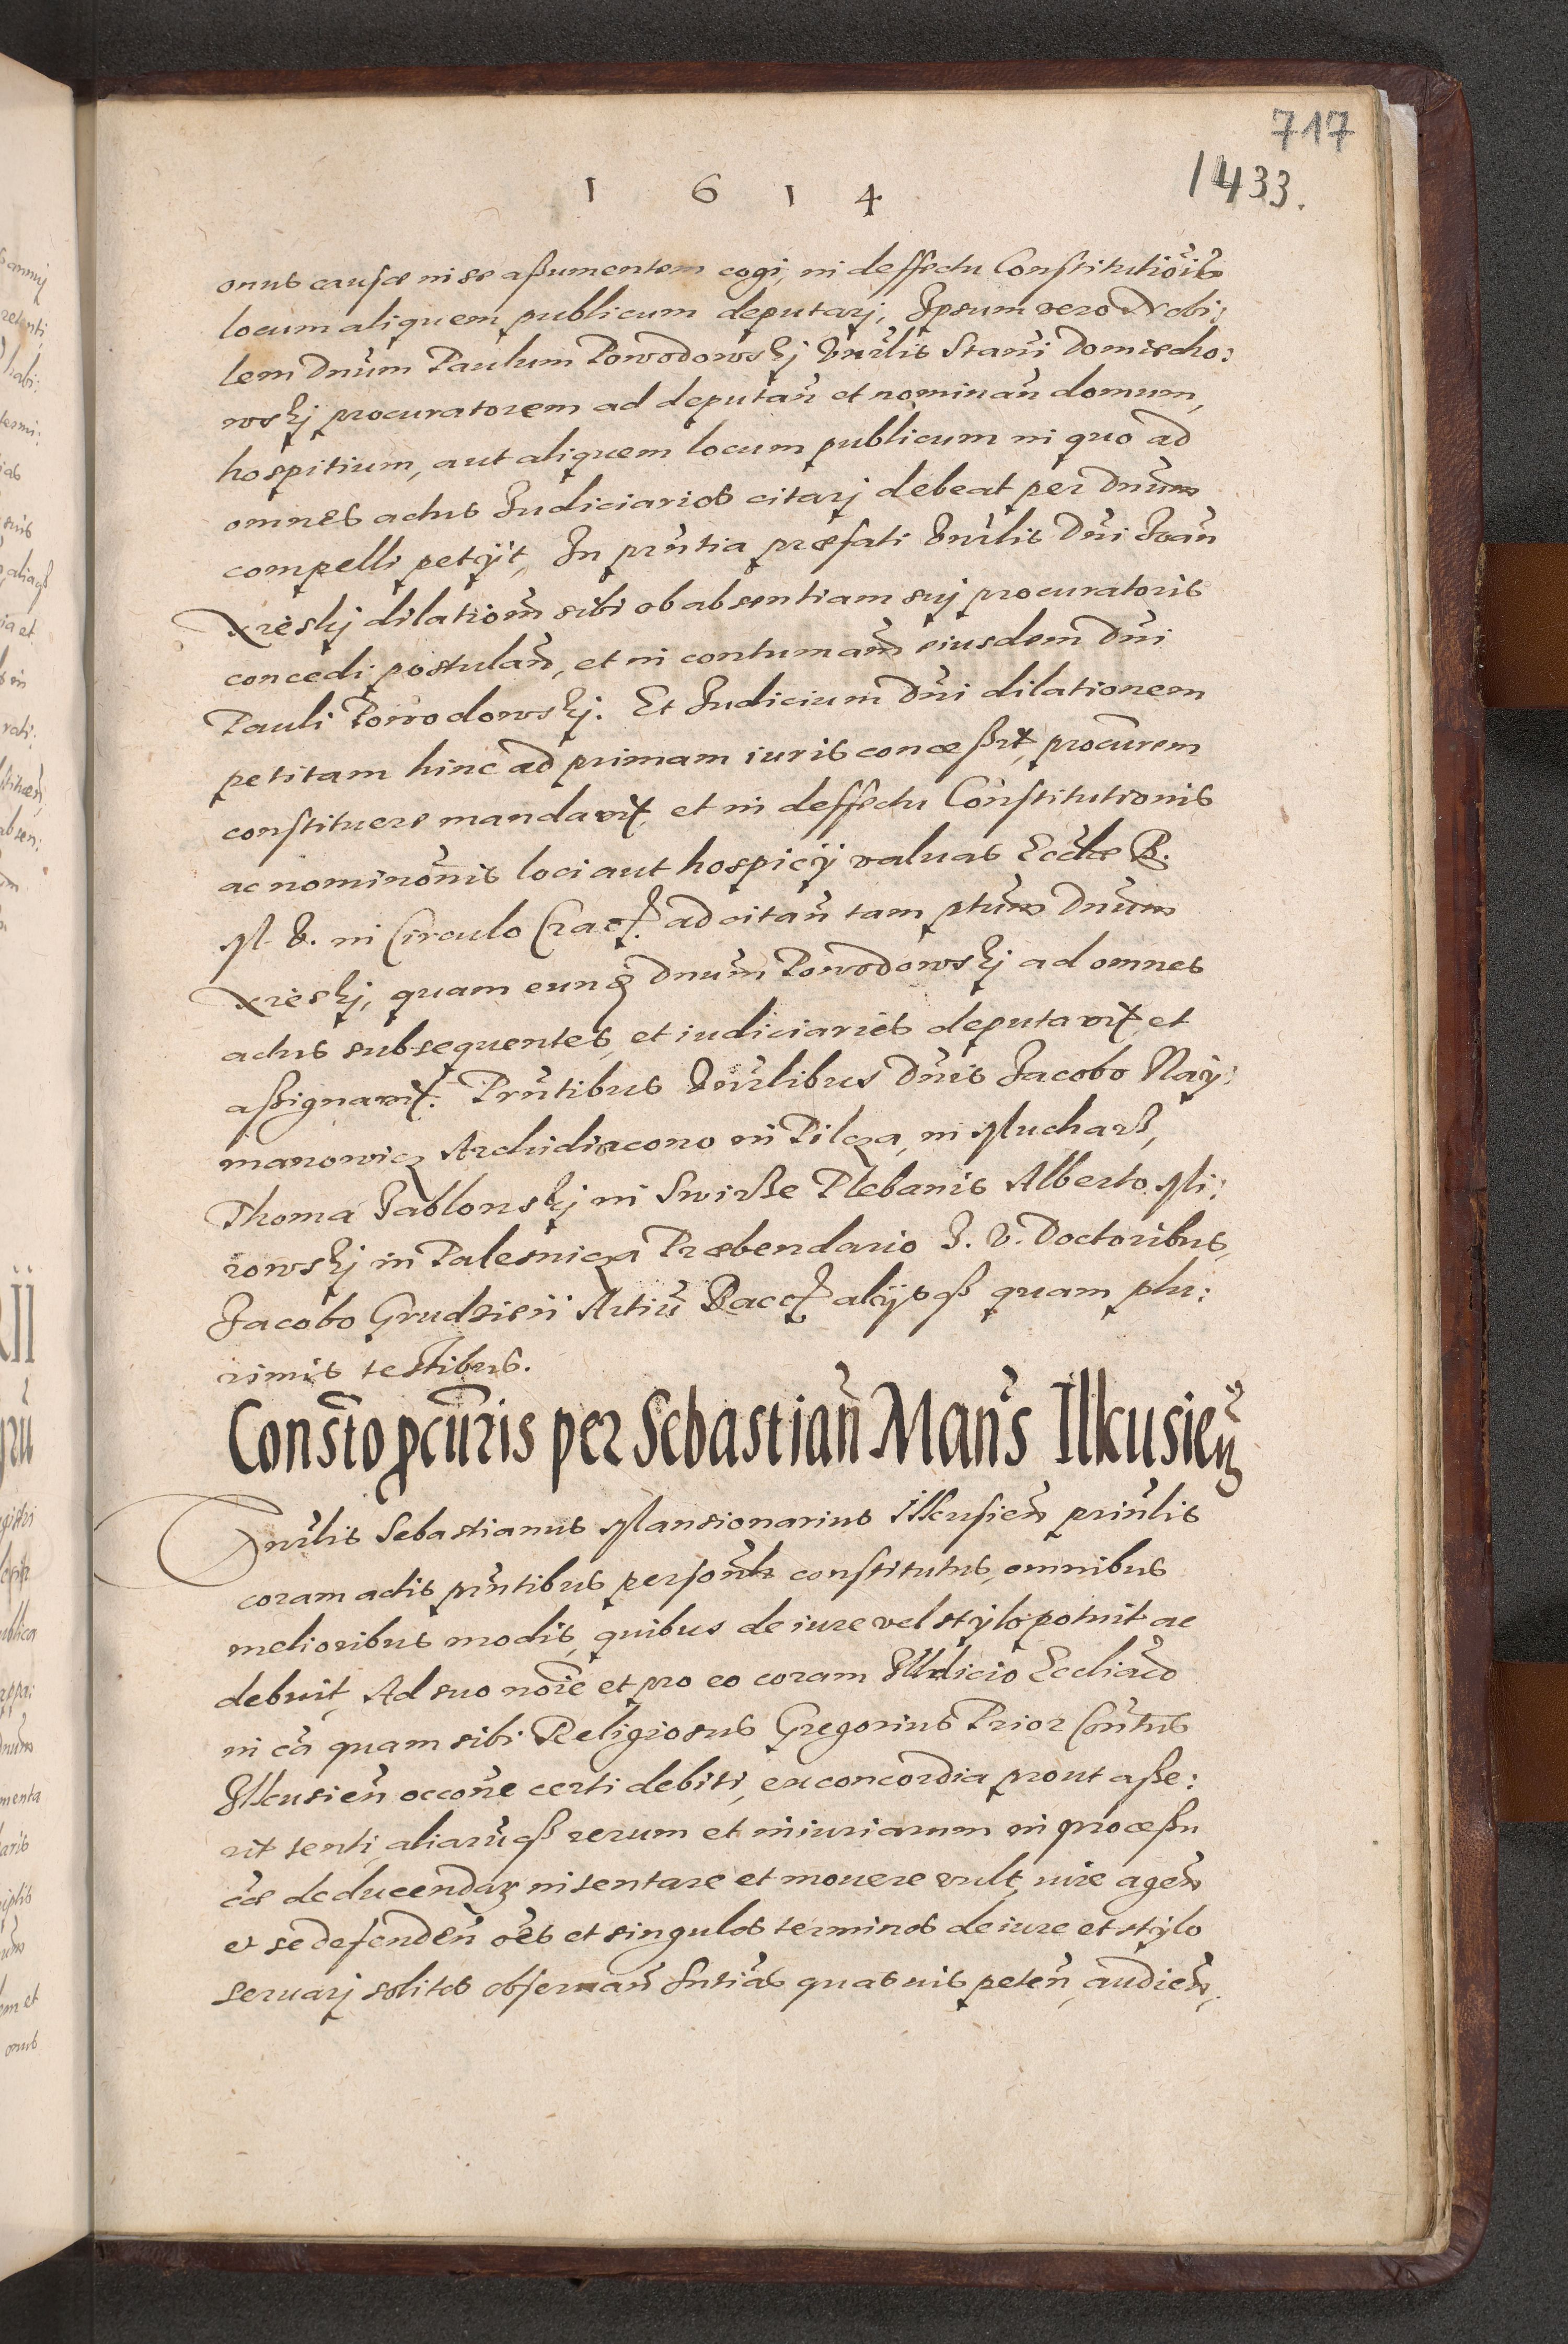 717
1433.
1 6 1 4
onus causæ in se assumentem cogi, in deffectu Constitutiõis
locum aliquem publicum deputarj, Ipsum vero Nobi:
lem Dnũm Paulum Powodowskj Vnrlis Stani Domiecho:
wskj procuratorem ad deputan̄ et nominan̄ domum,
hospitium, aut aliquem locum publicum in quo ad
omnes actus Iudiciarios citarj debeat per Dnũm
compelli petÿt, In prñtia præfati Vnrlis Dñi Ioan̄
dilatiom̄ sibi ob absentiam suj procuratoris
concedi postulan̄, et in contumam̄ eiusdem Dñi
Pauli Powodowskj. Et Iudicium Dñi dilationem
petitam hinc ad primam iuris concessit, procurem
constituere mandavit, et in deffectu Constitutionis
ac nominõnis loci aut hospicÿ valuas Ecclæ B.
M. V. in Circulo Crac. ad citan̄ tam ptum̄ Dnũm
quam eund Dnũm Powodowskj ad omnes
actus subsequentes, et iudiciaries deputavit, et
assignavit. Prñtibus Vnrlibus Dñis Jacobo Nay:
manowicz Archidiacono in Pilcza, in Mucharz,
Thoma Jablonskj in Swirze Plebanis Alberto Mi:
rowskj in Palesnicza Præbendario I. V. Doctoribus,
Jacobo Grudzień Artiũ Bacc. alÿsq quam plu:
rimis testibus.
Consto pcuris per Sebastian̄ Mans Ilkusien̄
Vnrlis Sebastianus Mansionarius Illcusien̄ prinlis
coram actis prñtibus personlr constitutus, omnibus
melioribus modis, quibus de iure vel stylo potuit ac
debuit, Ad suo noĩe et pro eo coram Iudicio Eccliaco
in cã quam sibi Religiosus Gregorius Prior Contus
Illcusien̄ occone certi debiti, ex concordia prout asse:
rit tenti, aliarũq rerum et iniuriarum in processu
cæ deducendar intentare et mouere vult, iure agen̄
et se defenden̄ oẽs et singulos terminos de iure et stylo
seruarj solitos obseruan̄ sntias quasuis peten̄, audien̄,